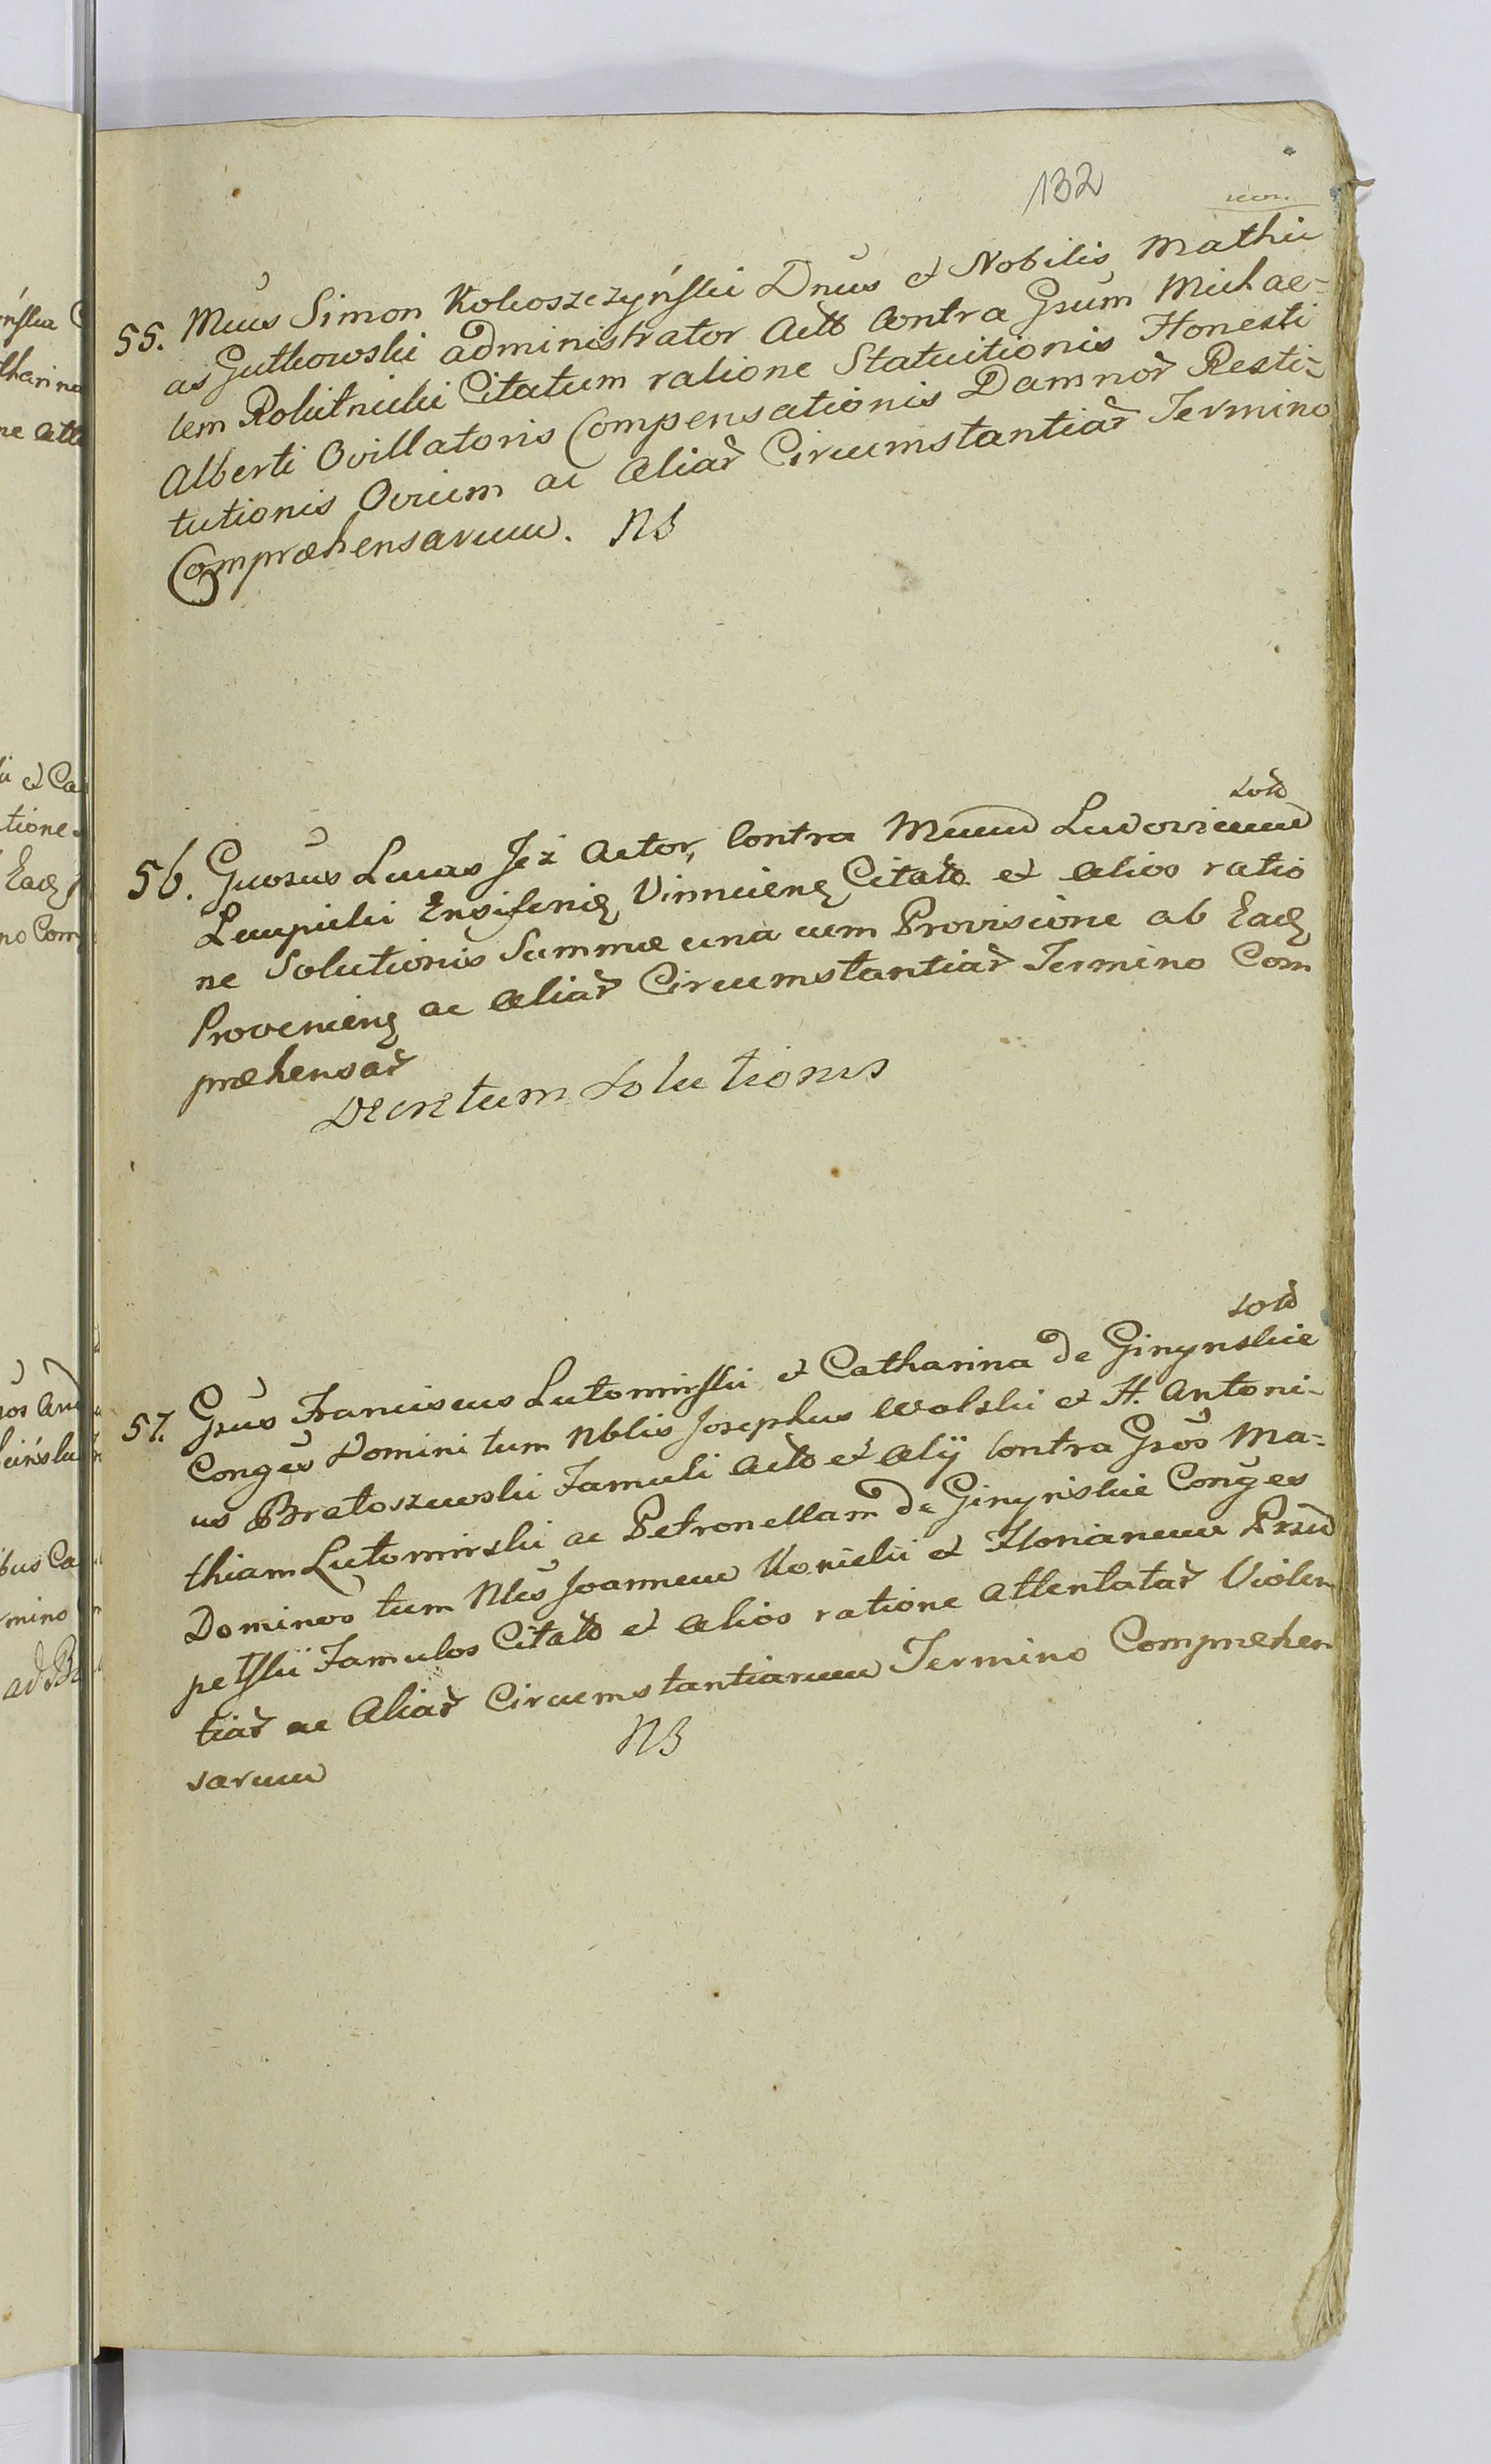 132
55. Mcus Simon Kokoszczyński Dnus et Nobilis Mathi
as Gutkowski administrator Act̃t̃ Contra Gsum Michae=
lem Rokitnicki Citatum ratione Statuitionis Honesti
Alberti Ovillatoris Compensationis Damnor̃ Resti=
tutionis Ovium ac Aliar̃ Circumstantiar̃ Termino
Compræhensarum. NB
Sol̃t̃
56. Gnosus Lucas Jeż Actor, Contra Mcum Ludovicum
Ensiferũ Vinnicenę Citat̃t̃ et Alios ratio
ne Solutionis Summæ una cum Provisione ab Eadę
Provenienę ac Aliar̃ Circumstantiar̃ Termino Com
præhensar̃
Decretum Solutionis
Sol̃t̃
57. Gsus Franciscus Lutomirski et Catharina de Ginynskie
Conges Domini tum Nblis Josephus Wolski et H. Antoni=
us Bratoszewski Famuli Act̃t̃ et Alij Contra Gsos Ma=
thiam Lutomirski ac Petronellam de Ginynskie Conges
Dominos tum Nles Joannem Konicki et Florianum
Famulos Citat̃t̃ et Alios ratione Attentatar̃ Violen
tiar̃ ac Aliar̃ Circumstantiarum Termino Compræhen
sarum NB